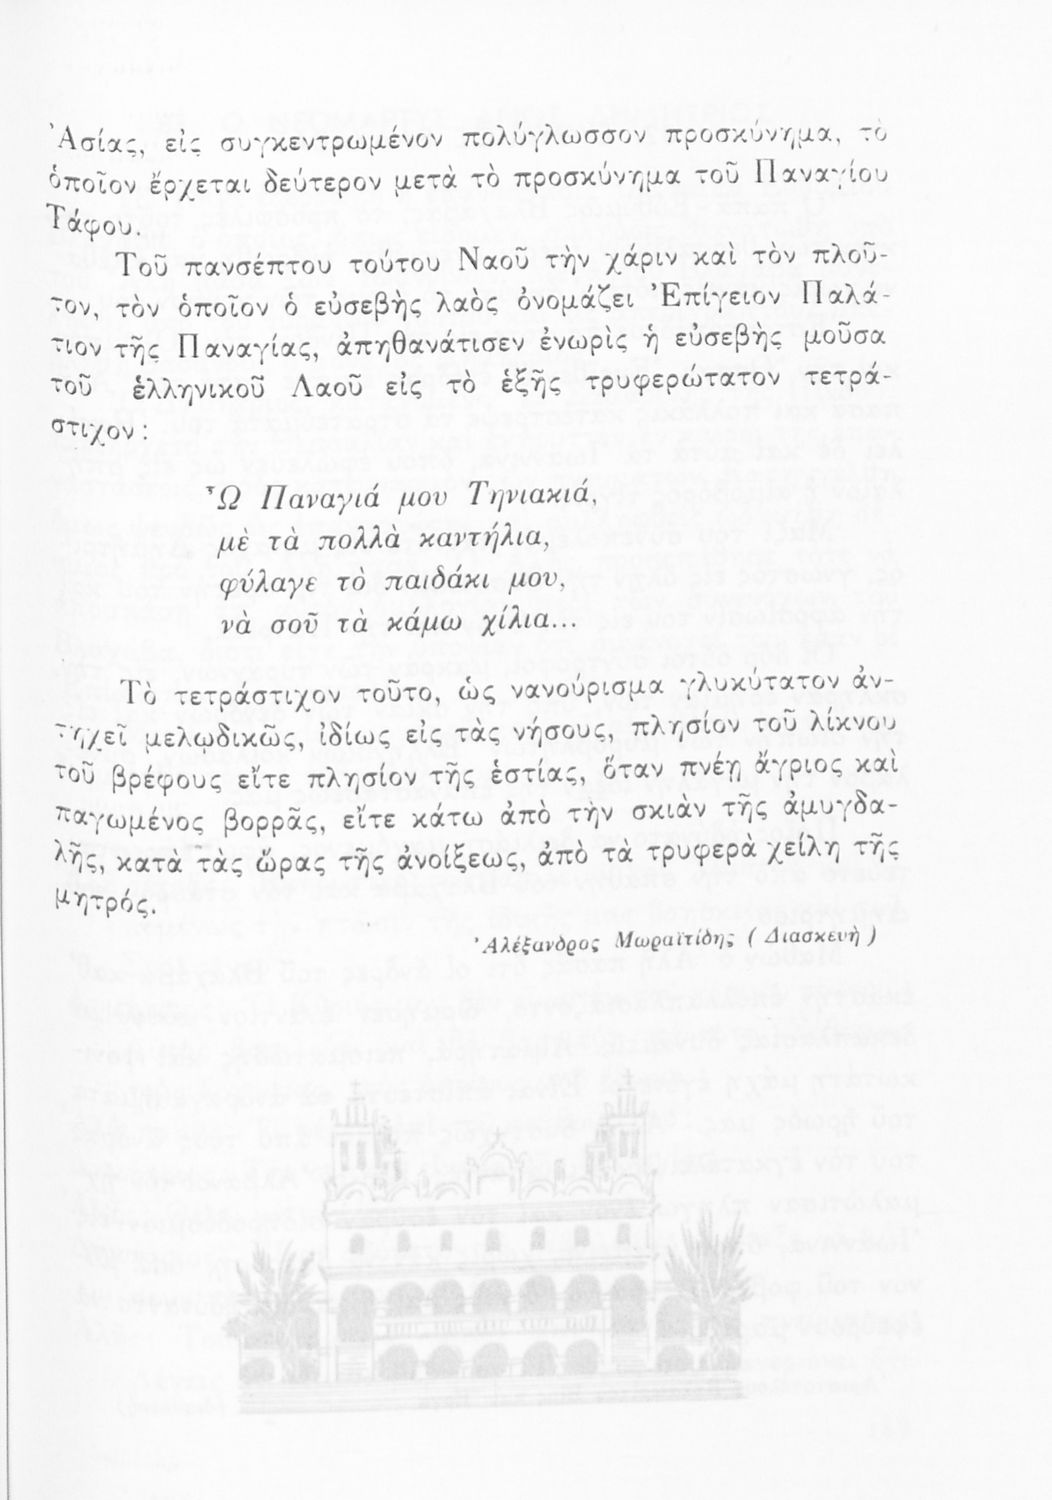 Ἀσίας, εἰς συγκεντρωμένον πολύγλωσσον προσκύνημα, τὸ
ὁποῖον ἔρχεται δεύτερον μετὰ τὸ προσκύνημα τοῦ Παναγίου
Τάφου.
Τοῦ πανσέπτου τούτου Ναοῦ τὴν χάριν καὶ τὸν πλοῦ-
τον, τὸν ὁποῖον ὁ εὐσεβὴς λαὸς ὀνομάζει Ἐπίγειον Παλά-
τιον τῆς Παναγίας, ἀπηθανάτισεν ἐνωρὶς ἡ εὐσεβὴς μοῦσα
τοῦ ἑλληνικοῦ Λαοῦ εἰς τὸ ἑξῆς τρυφερώτατον τετρά-
στιχον :
Ὦ Παναγιά μου Τηνιακιά,
μὲ τὰ πολλὰ καντήλια,
φύλαγε τὸ παιδάκι μου,
νὰ σοῦ τὰ κάμω χίλια...
Τὸ τετράστιχον τοῦτο, ὡς νανούρισμα γλυκύτατον ἀν-
τηχεῖ μελῳδικῶς, ἰδίως εἰς τὰς νήσους, πλησίον τοῦ λίκνου
τοῦ βρέφους εἴτε πλησίον τῆς ἑστίας, ὅταν πνέῃ ἄγριος καὶ
παγωμένος βορρᾶς, εἴτε κάτω ἀπὸ τὴν σκιὰν τῆς ἀμυγδα-
λῆς, κατὰ τὰς ὥρας τῆς ἀνοίξεως, ἀπὸ τὰ τρυφερὰ χείλη τῆς
μητρός.
Ἀλέξανδρος Μωραϊτίδης ( Διασκευὴ )